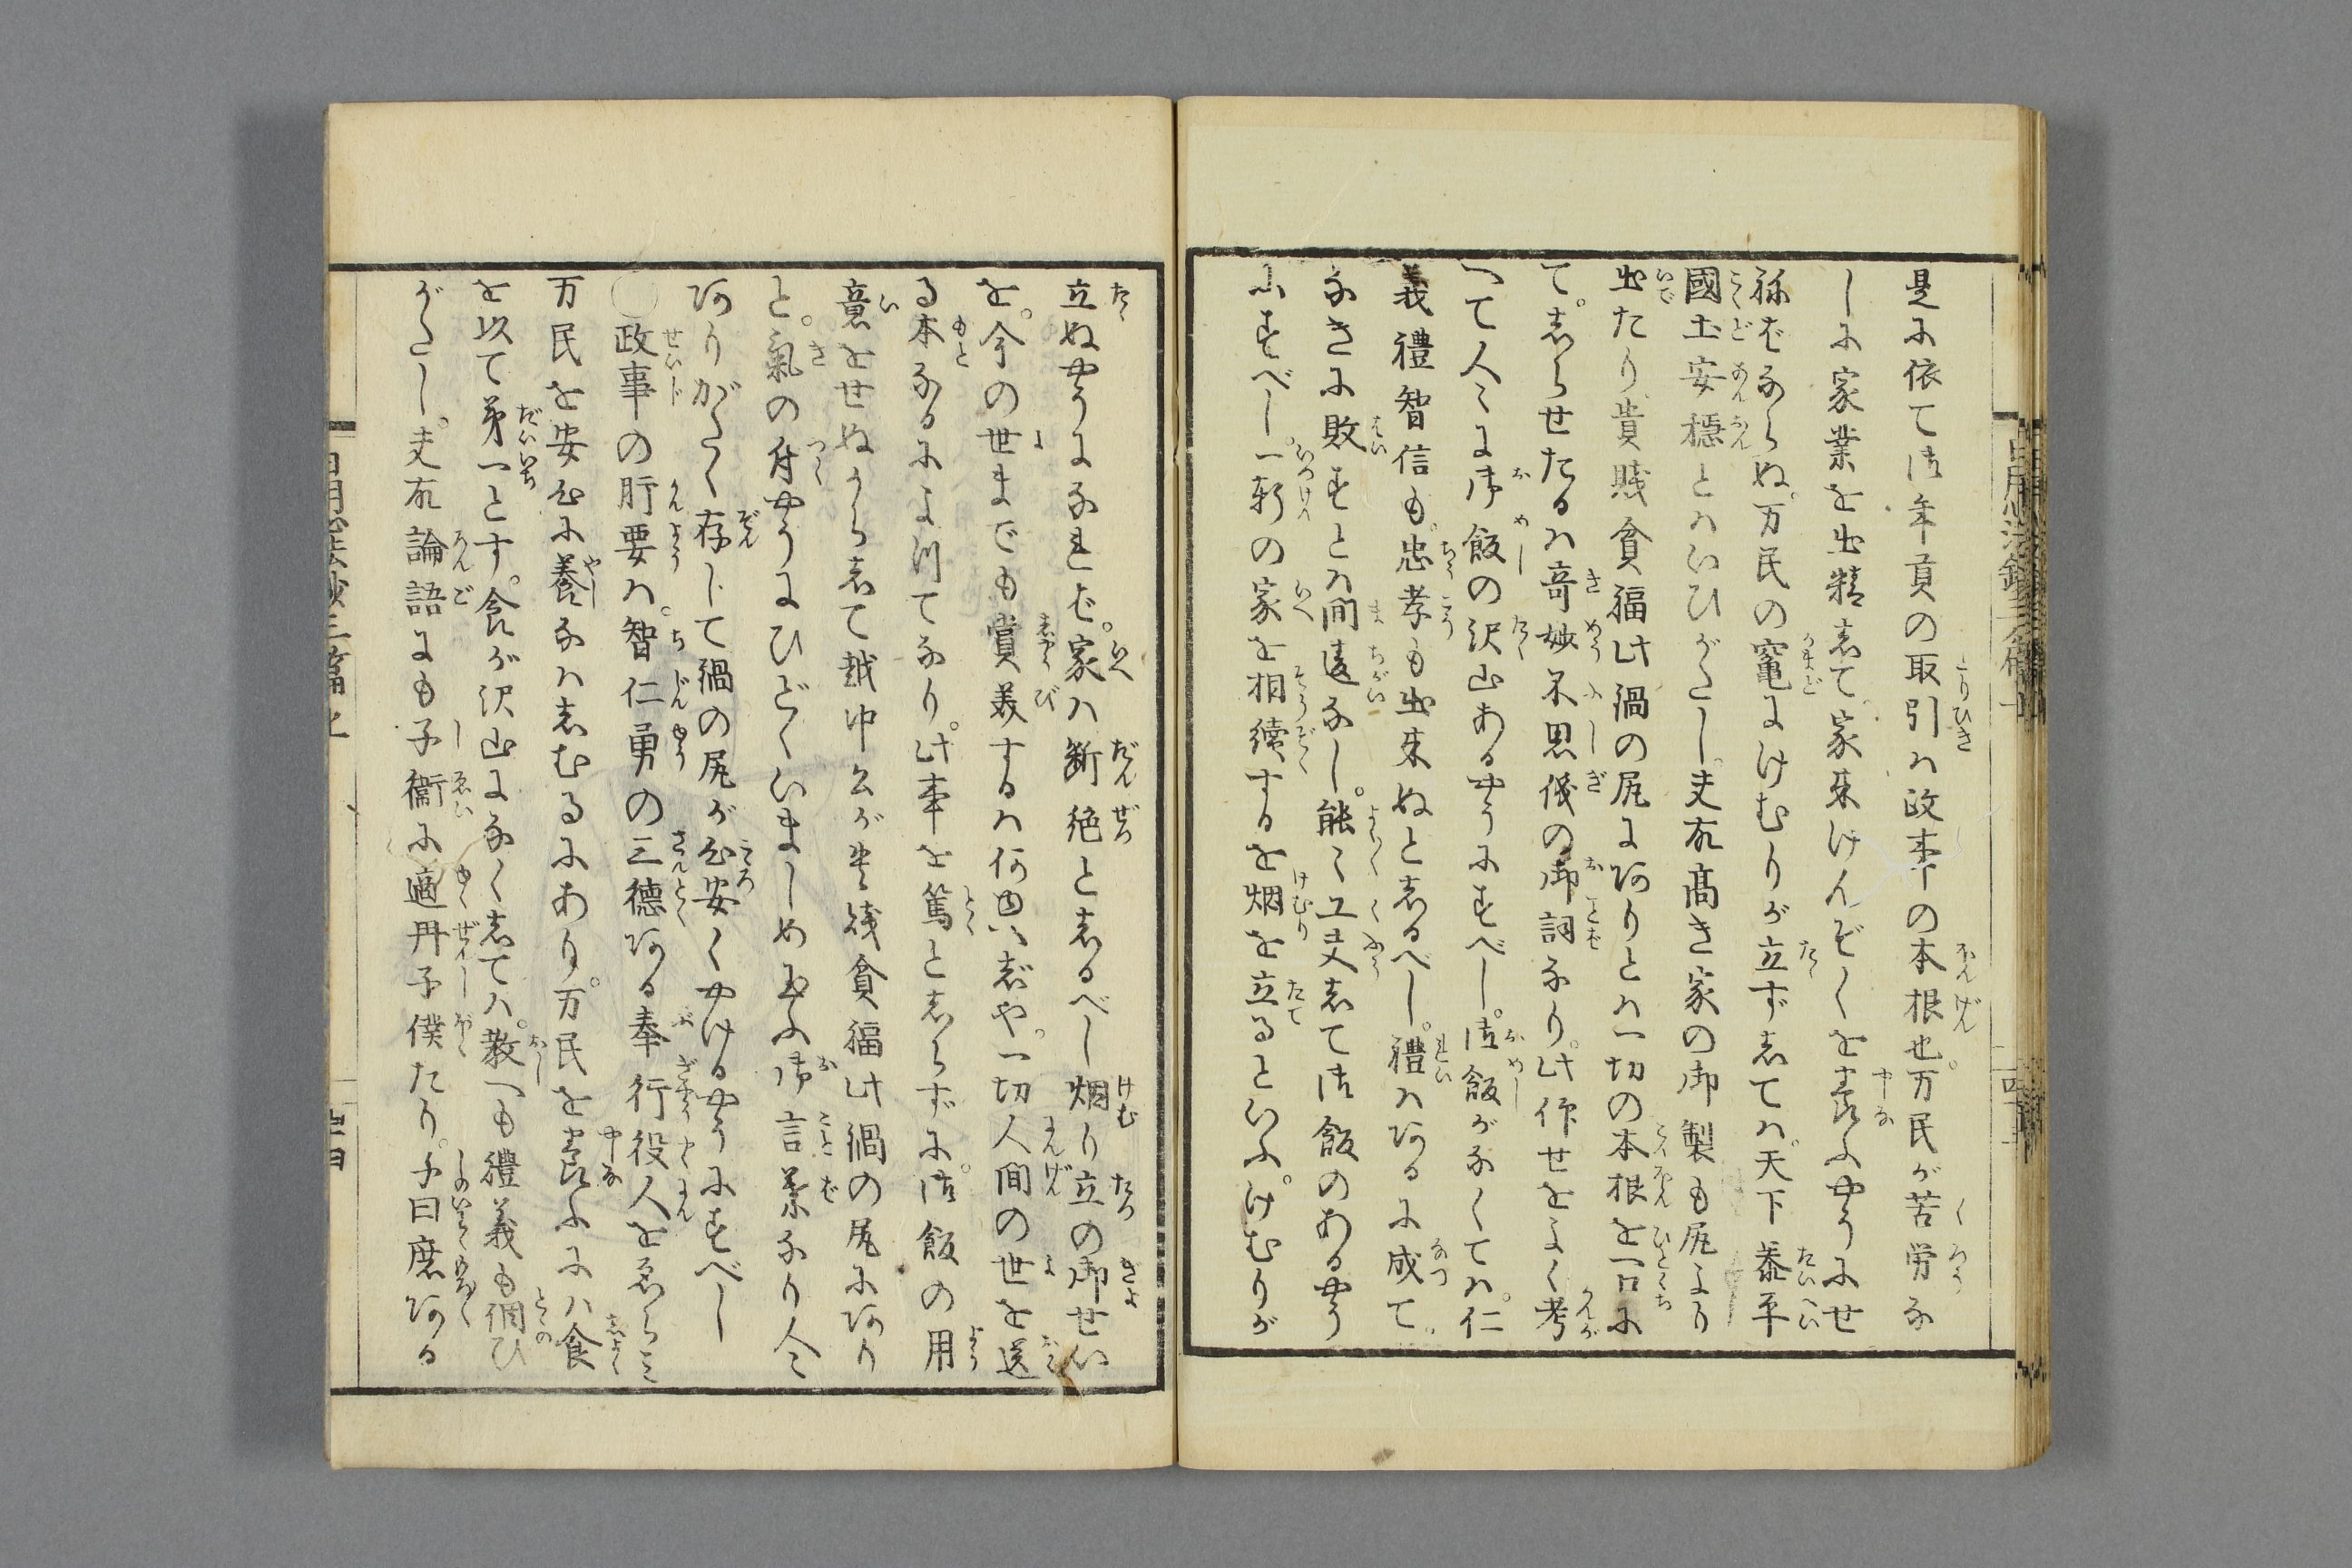 是に依て御年貢の取引ハ政事の本根也。万民が苦労な
しに家業を出精志て。家来けんぞくを養ふやうにせ
ねばならぬ。万民の竃にけむりが立ず志てハ。天下泰平
國土安穏とハいひがたし。夫故高き家の御製も尻より
出たり。貴賤貧福此渦の尻に有りとハ一切の本根を一口に
て。志らせたるハ奇妙不思儀の御詞なり。此作せをよく考
へて人々に御飯の沢山ある様にすべし。御飯がなくてハ。仁
義禮智信も。忠孝も出来ぬと志るべし。禮ハ有るに成て。
なきに敗すとハ間違なし。能々工夫志て御飯のある様
にすべし。一軒の家を相續するを烟を立るといふ。けむりが
立ぬやうになれば。家ハ断絶と志るべし烟り立の御せい
を。今の世までも賞美するハ何ゆへぢや。一切人間の世を送
る本なるによつてなり。此事を篤と志らずに。御飯の用
意をせぬから志て越中公が貴賤貧福此渦の尻に有り
と。氣の付やうにひどくいましめ給ふ御言葉なり人々
有りがたく存じて渦の尻が心安くやけるやうにすべし
○政事の肝要ハ。智仁勇の三徳有る奉行役人をゑらミ
万民を安心に養なハ志むるにあり。万民を養ふにハ食
を以て第一とす。食が沢山になく志てハ。教へも禮義も調ひ
がたし。夫故論語にも子衛に適冉子僕たり。子曰庶有る